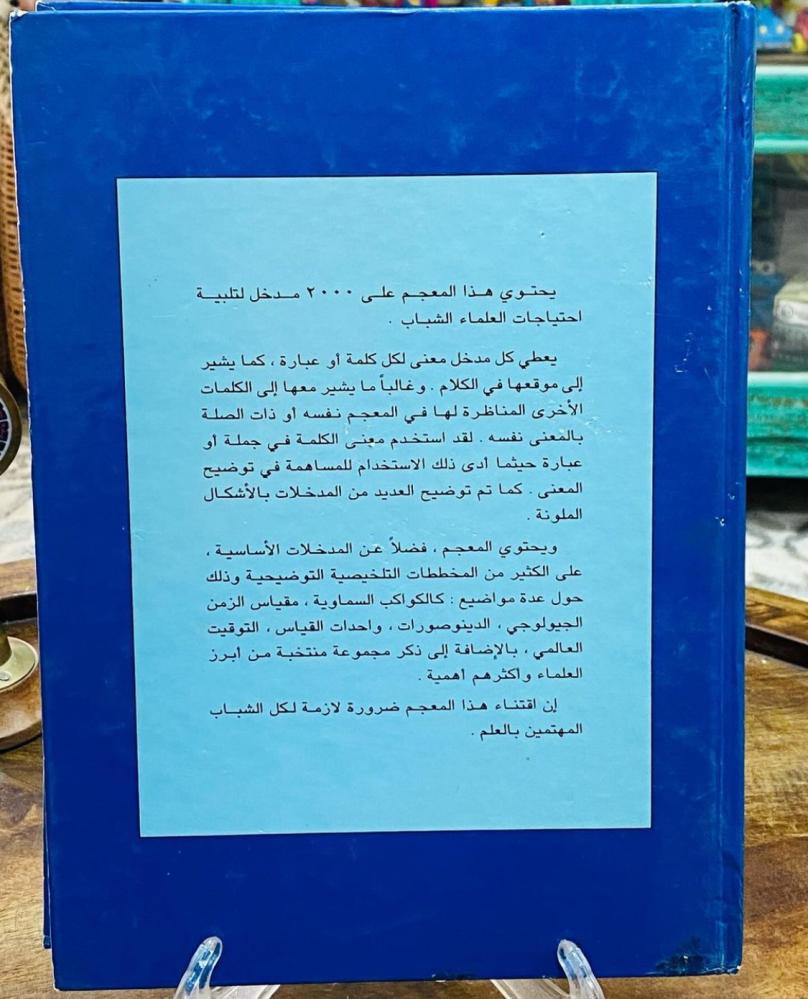 يحتوي هذا المعجم على ٢٠٠٠ مدخل لتلبية
احتياجات العلماء الشباب .
يعطي كل مدخل معنى لكل كلمة أو عبارة ، كما يشير
إلى موقعها في الكلام . وغالباً ما يشير معها إلى الكلمات
الأخرى المناظرة لها في المعجم نفسه أو ذات الصلة
بالمعنى نفسه . لقد استخدم معنى الكلمة في جملة أو
عبارة حيثما أدى ذلك الاستخدام للمساهمة في توضيح
المعنى . كما تم توضيح العديد من المدخلات بالأشكال
الملونة .
ويحتوي المعجم ، فضلاً عن المدخلات الأساسية ،
على الكثير من المخططات التلخيصية التوضيحية وذلك
حول عدة مواضيع : كالكواكب السماوية ، مقياس الزمن
الجيولوجي ، الدينوصورات ، واحدات القياس ، التوقيت
العالمي ، بالإضافة إلى ذكر مجموعة منتخبة من أبرز
العلماء وأكثرهم أهمية .
إن اقتناء هذا المعجم ضرورة لازمة لكل الشباب
المهتمين بالعلم .